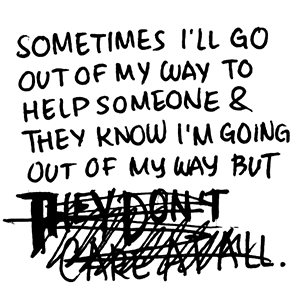 SOMETIMES I'LL GO
OUT OF MY WAY TO
HELP SOMEONE &
THEY KNOW I'M GOING
OUT OF MY WAY BUT
THEY DON'T
CARE AT ALL.